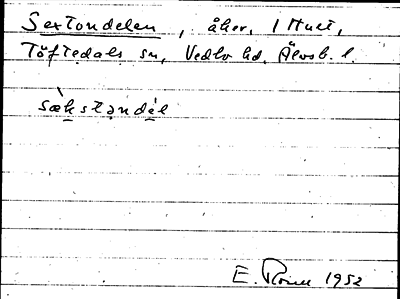 Sextondelen, åker, 1 Hult,
Töftedals sn, Vedbo hd, Älvsb. l.
sækstondel
E. 1952